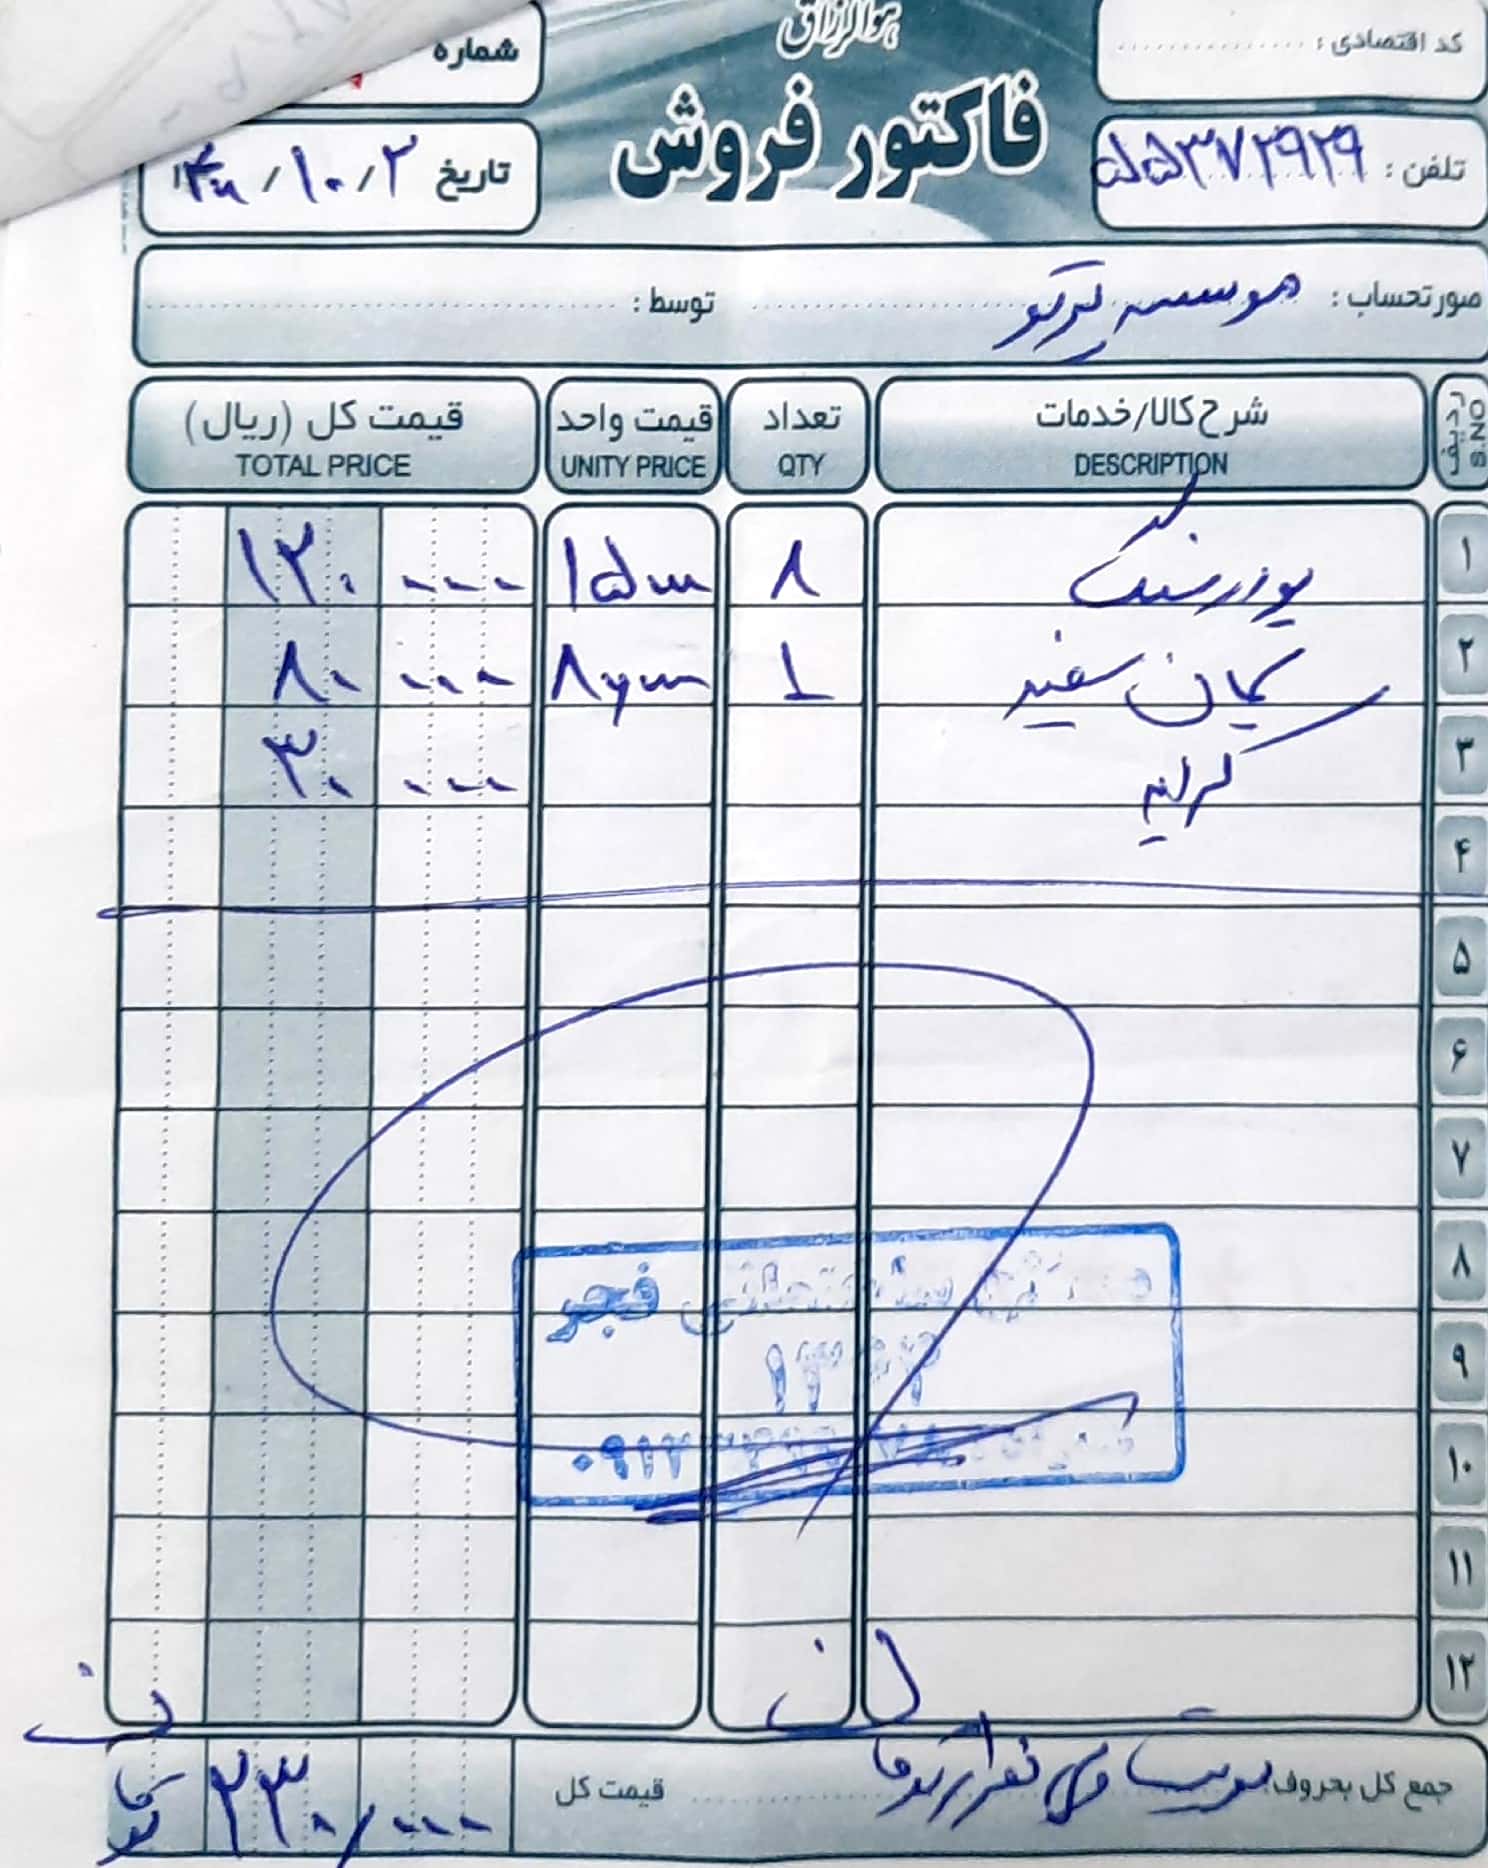 هوالرزاق
فاکتور فروش
کد اقتصادی :
شماره
تلفن : ۵۵۳۷۲۹۲۹
تاریخ ۱۰/۲/
صورتحساب : موسسه پرتو توسط :
ردیف S.NO شرح کالا/خدمات DESCRIPTION تعداد QTY قیمت واحد UNITY PRICE قیمت کل (ریال) TOTAL PRICE
۱ پودر سنگ ۸ ۱۲۰ ۰۰۰
۲ سیمان سفید ۱ ۸۰ ۰۰۰
۳ کرایه ۳۰ ۰۰۰
۴
۵
۶
۷
۸ فجر
۹
۱۰
۱۱
۱۲
جمع کل بحروف: دویست و سی هزار تومان قیمت کل ۲۳۰/۰۰۰ تومان